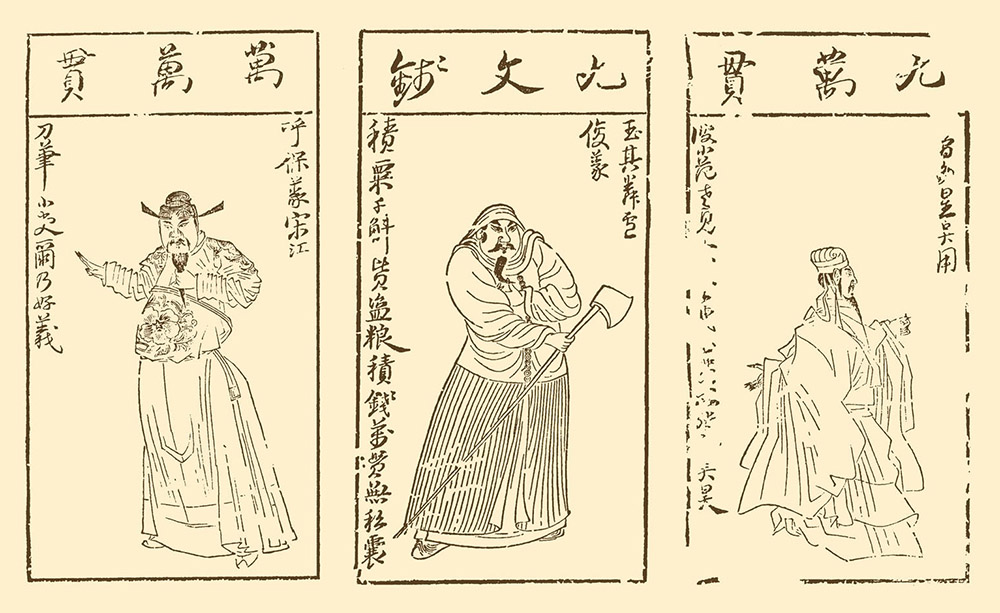 萬萬貫
呼保義宋江
刀筆小吏爾乃好義
九文錢
玉其麟盧
俊義
積粟千斛貲盜粮積錢萬貫無私囊
九萬貫
智多星吳用
彼小范老見
吳昊